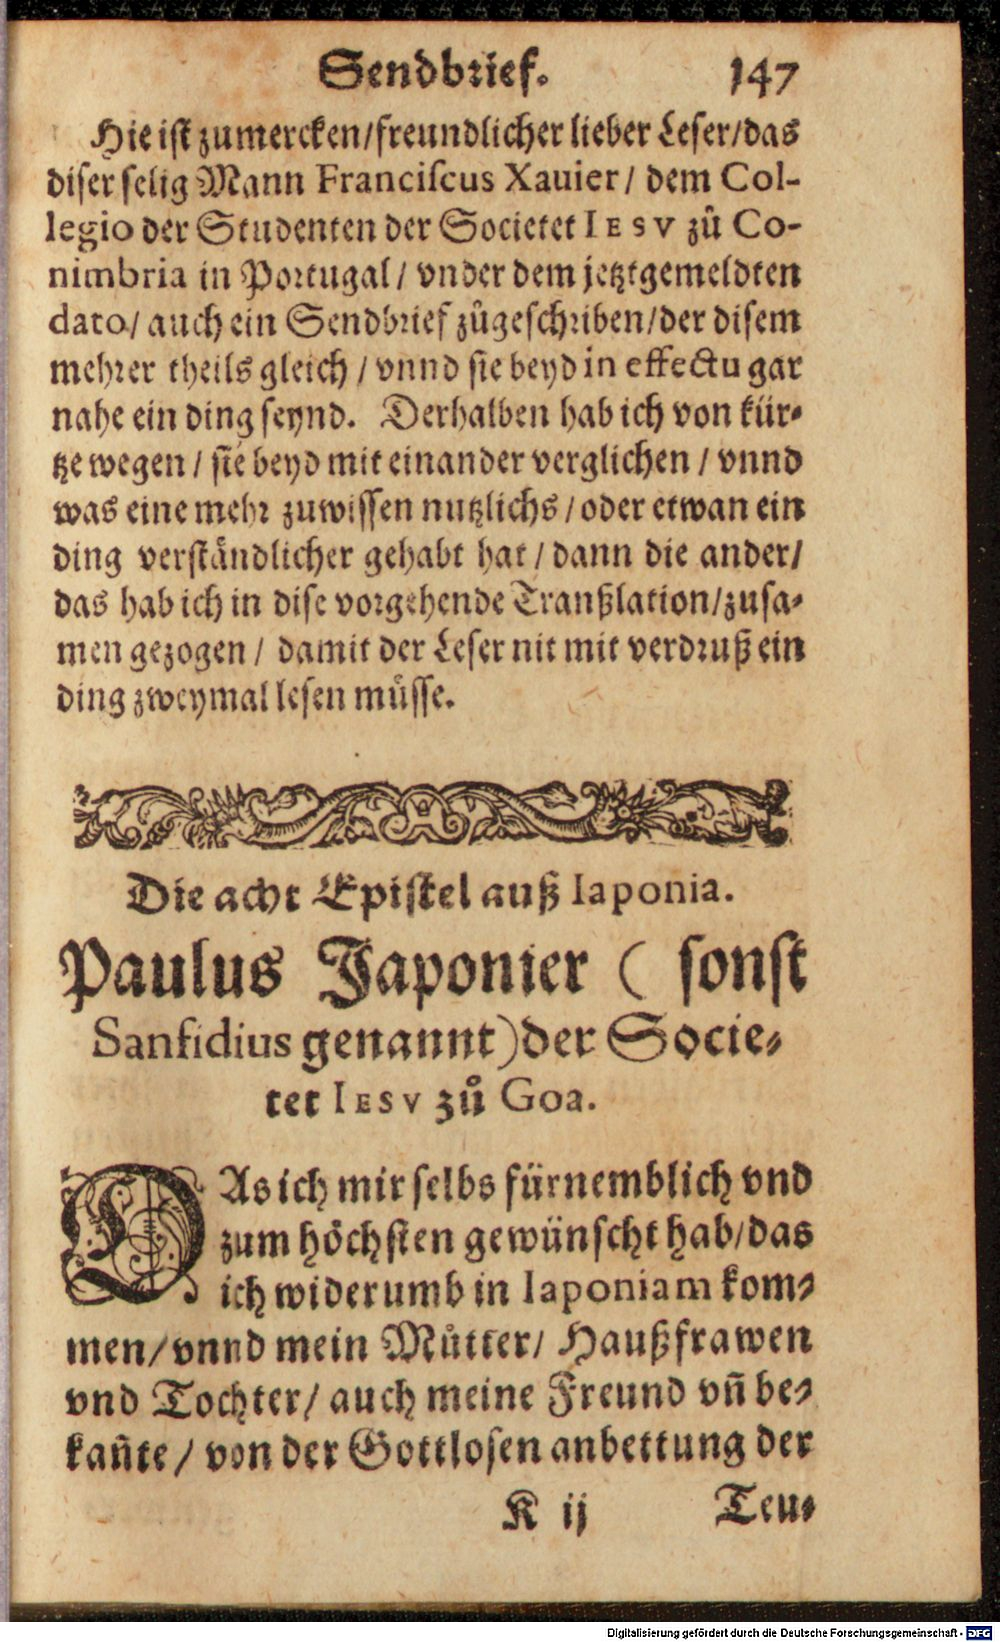 Sendbrief. 147
Hie ist zumercken/freundlicher lieber Leser/das
diser selig Mann Franciscus Xauier/ dem Col-
legio der Studenten der Societet IESV zů Co-
nimbria in Portugal/ vnder dem jetztgemeldten
dato/ auch ein Sendbrief zůgeschriben/der disem
mehrer theils gleich / vnnd sie beyd in effectu gar
nahe ein ding seynd. Derhalben hab ich von kür-
tze wegen / sie beyd mit einander verglichen / vnnd
was eine mehr zuwissen nutzlichs / oder etwan ein
ding verständlicher gehabt hat / dann die ander/
das hab ich in dise vorgehende Tranßlation/zusa-
men gezogen / damit der Leser nit mit verdruß ein
ding zweymal lesen müsse.
Die acht Epistel auß Iaponia.
Paulus Japonier ( sonst
Sanfidius genannt) der Socie-
tet IESV zů Goa.
DAs ich mir selbs fürnemblich vnd
zum höchsten gewünscht hab/das
ich widerumb in Iaponiam kom-
men/vnnd mein Můtter/ Haußfrawen
vnd Tochter/ auch meine Freund vñ be-
kañte / von der Gottlosen anbettung der
K ij Teu-
Digitalisierung gefördert durch die Deutsche Forschungsgemeinschaft - DFG